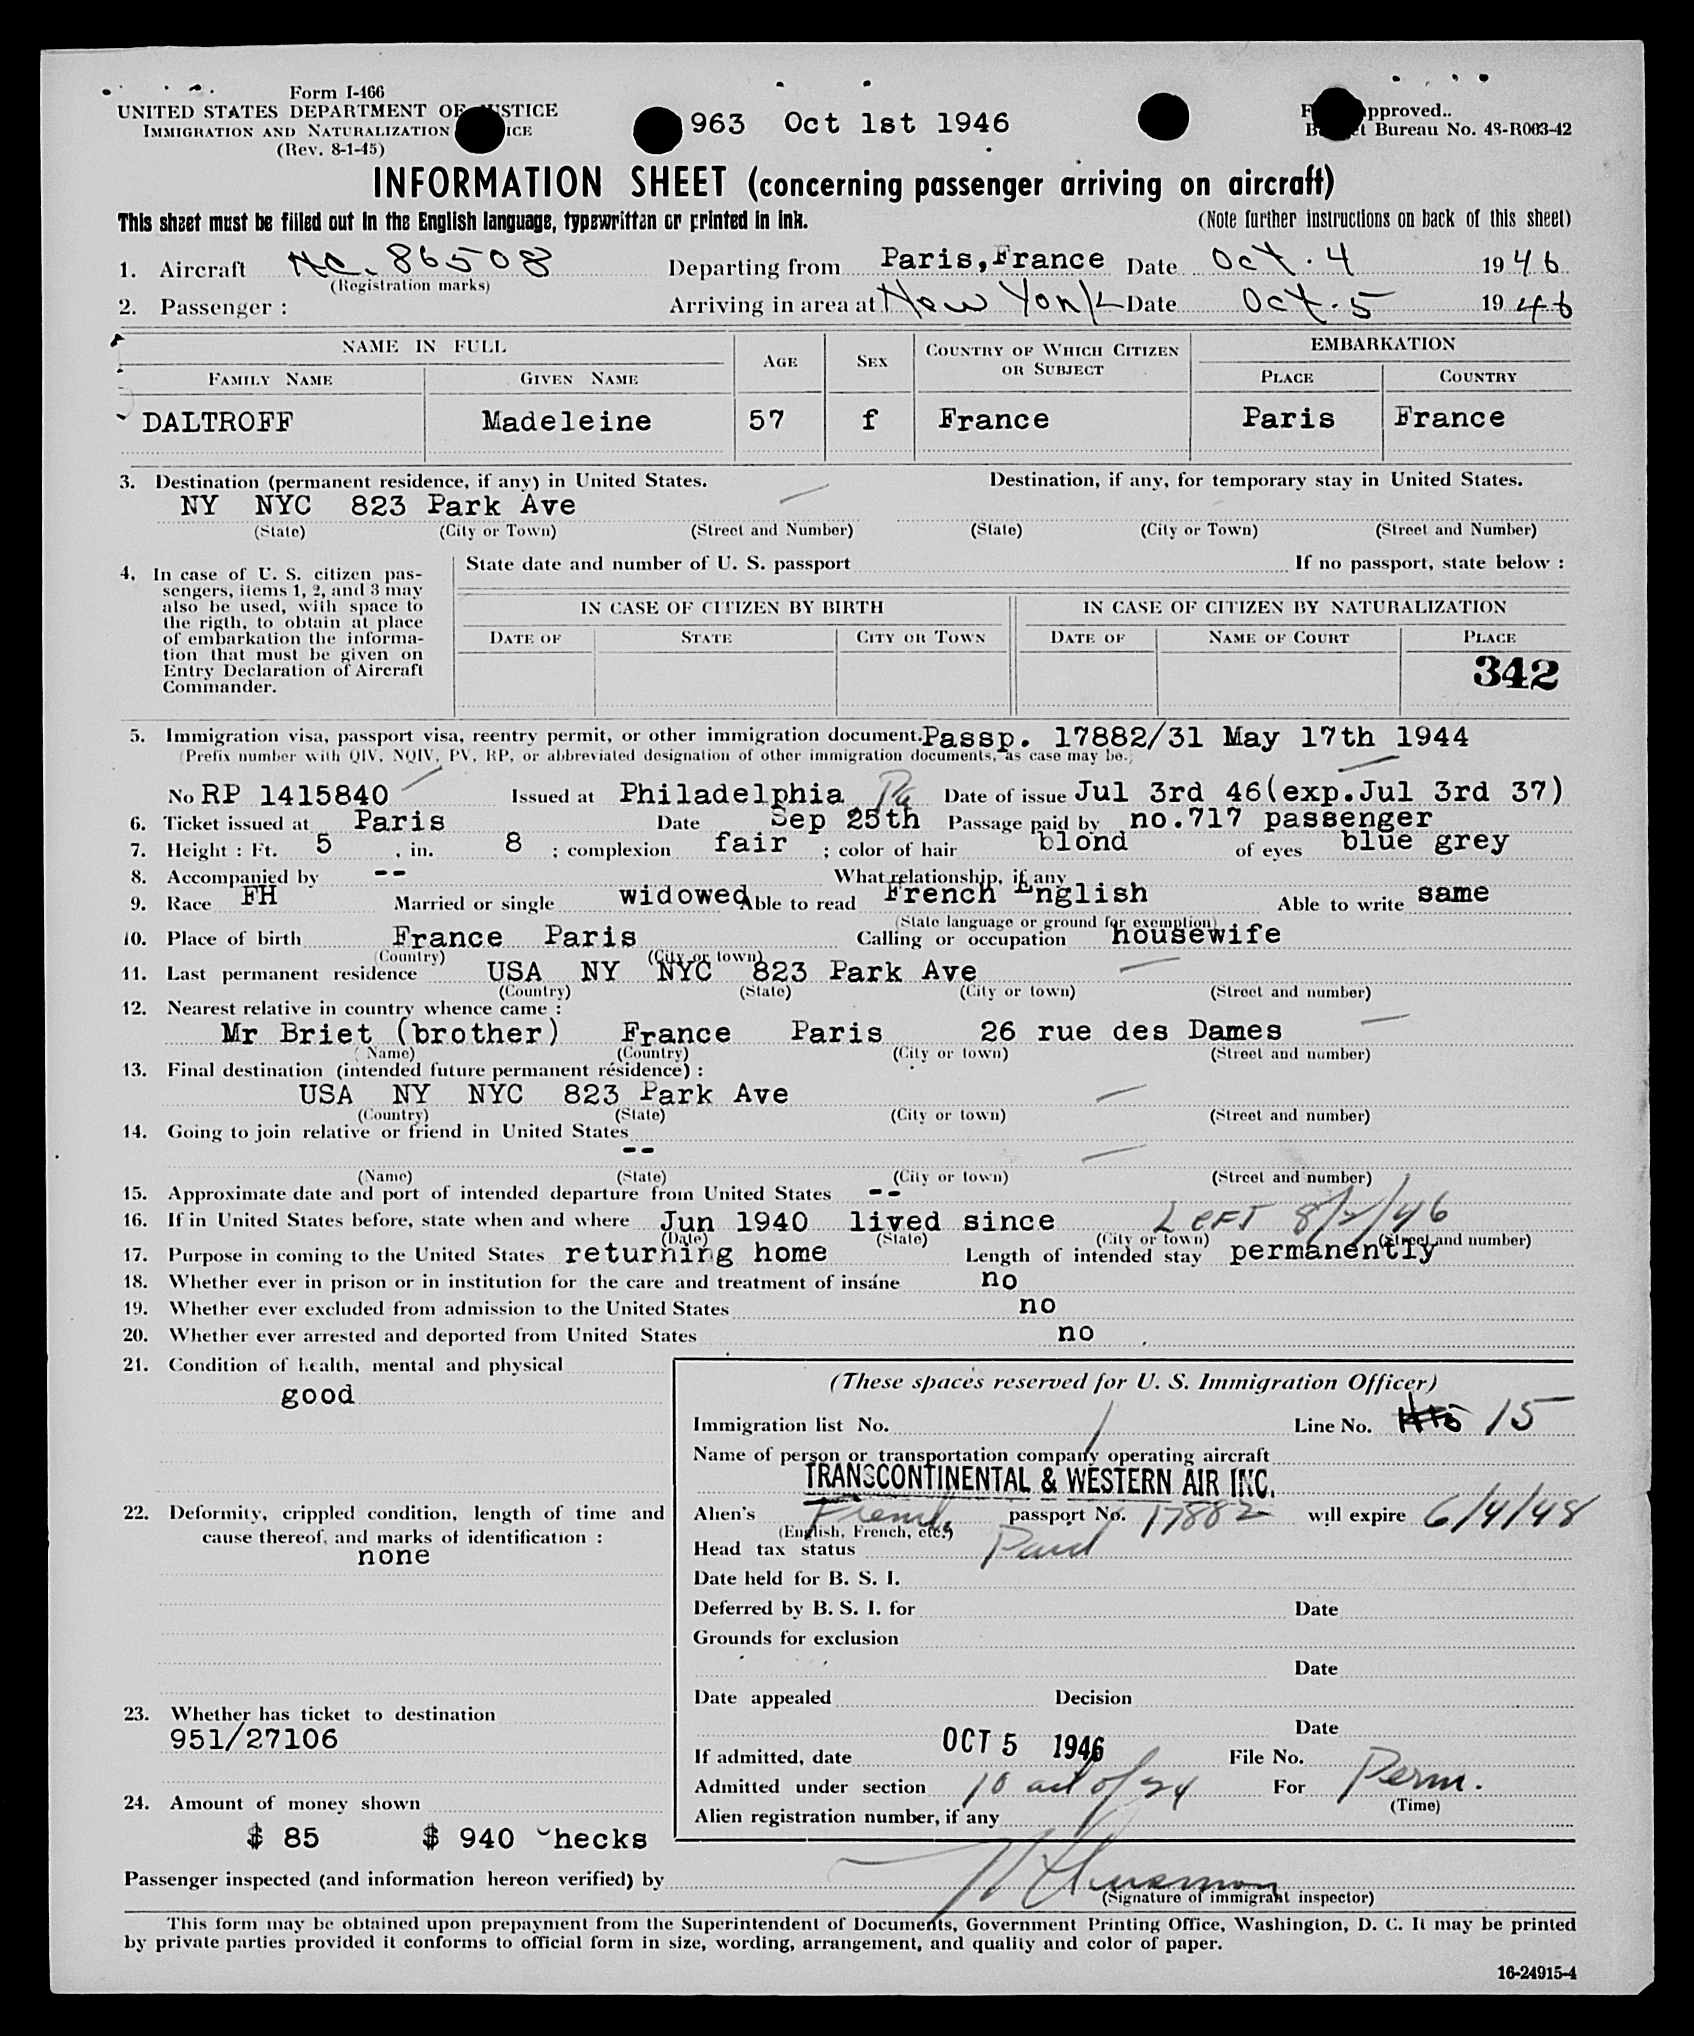 Form I-466
UNITED STATES DEPARTMENT OF JUSTICE
IMMIGRATION AND NATURALIZATION ICE
(Rev. 8-1-45)
963 Oct 1st 1946
F pproved..
B t Bureau No. 43-R003-42
INFORMATION SHEET (concerning passenger arriving on aircraft)
This sheet must be filled out in the English language, typewritten or printed in ink. (Note further instructions on back of this sheet)
1. Aircraft NC. 86508 Departing from Paris,France Date Oct. 4 1946
(Registration marks)
2. Passenger : Arriving in area at New York Date Oct. 5 1946
NAME IN FULL AGE SEX COUNTRY OF WHICH CITIZEN OR SUBJECT EMBARKATION
FAMILY NAME GIVEN NAME PLACE COUNTRY
DALTROFF Madeleine 57 f France Paris France
3. Destination (permanent residence, if any) in United States. Destination, if any, for temporary stay in United States.
NY NYC 823 Park Ave
(State) (City or Town) (Street and Number) (State) (City or Town) (Street and Number)
4. In case of U. S. citizen pas-
sengers, items 1, 2, and 3 may
also be used, with space to
the rigth, to obtain at place
of embarkation the informa-
tion that must be given on
Entry Declaration of Aircraft
Commander.
State date and number of U. S. passport If no passport, state below :
IN CASE OF CITIZEN BY BIRTH IN CASE OF CITIZEN BY NATURALIZATION
DATE OF STATE CITY OR TOWN DATE OF NAME OF COURT PLACE
342
5. Immigration visa, passport visa, reentry permit, or other immigration document. Passp. 17882/31 May 17th 1944
(Prefix number with QIV, NQIV, PV, RP, or abbreviated designation of other immigration documents, as case may be.)
No RP 1415840 Issued at Philadelphia Pa Date of issue Jul 3rd 46(exp.Jul 3rd 37)
6. Ticket issued at Paris Date Sep 25th Passage paid by no.717 passenger
7. Height : Ft. 5 , in. 8 ; complexion fair ; color of hair blond of eyes blue grey
8. Accompanied by -- What relationship, if any
9. Race FH Married or single widowed Able to read French English Able to write same
(State language or ground for exemption)
10. Place of birth France Paris Calling or occupation housewife
(Country) (City or town)
11. Last permanent residence USA NY NYC 823 Park Ave
(Country) (State) (City or town) (Street and number)
12. Nearest relative in country whence came :
Mr Briet (brother) France Paris 26 rue des Dames
(Name) (Country) (City or town) (Street and number)
13. Final destination (intended future permanent résidence) :
USA NY NYC 823 Park Ave
(Country) (State) (City or town) (Street and number)
14. Going to join relative or friend in United States
--
(Name) (State) (City or town) (Street and number)
15. Approximate date and port of intended departure from United States --
16. If in United States before, state when and where Jun 1940 lived since Left 8/2/46
(Date) (State) (City or town) (Street and number)
17. Purpose in coming to the United States returning home Length of intended stay permanently
18. Whether ever in prison or in institution for the care and treatment of insáne no
19. Whether ever excluded from admission to the United States no
20. Whether ever arrested and deported from United States no
21. Condition of health, mental and physical
good
22. Deformity, crippled condition, length of time and
cause thereof, and marks of identification :
none
23. Whether has ticket to destination
951/27106
24. Amount of money shown
$ 85 $ 940 checks
(These spaces reserved for U. S. Immigration Officer)
Immigration list No. 1 Line No. 15
Name of person or transportation company operating aircraft
TRANSCONTINENTAL & WESTERN AIR INC.
Alien's French passport No. 17882 will expire 6/4/48
(English, French, etc.)
Head tax status Paid
Date held for B. S. I.
Deferred by B. S. I. for Date
Grounds for exclusion
Date
Date appealed Decision
Date
If admitted, date OCT 5 1946 File No.
Admitted under section 10 act of 24 For Perm.
(Time)
Alien registration number, if any
Passenger inspected (and information hereon verified) by
(Signature of immigrant inspector)
This form may be obtained upon prepayment from the Superintendent of Documents, Government Printing Office, Washington, D. C. It may be printed
by private parties provided it conforms to official form in size, wording, arrangement, and quality and color of paper.
16-24915-4